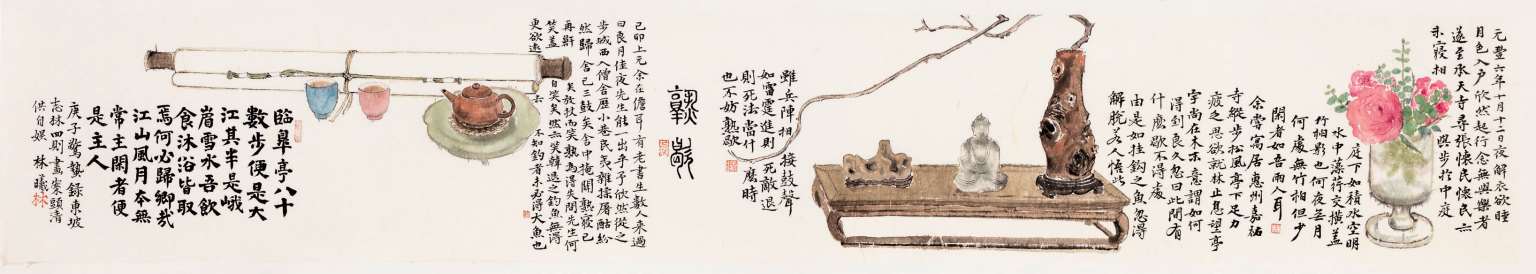 元豐六年十月十二日夜解衣欲睡
月色入戶欣然起行念無與樂者
遂至承天寺尋張懷民懷民亦
未寢相與步於中庭
庭下如積水空明
水中藻荇交橫蓋
竹柏影也何夜無月
何處無竹柏但少
閑者如吾兩人耳
余嘗寓居惠州嘉祐
寺縱步松風亭下足力
疲乏思欲就林止息望亭
宇尚在木末意謂如何
得到良久忽曰此間有
什麽歇不得處
由是如挂鈎之魚忽得
解脫若人悟此
雖兵陣相接鼓聲
如雷霆進則死敵退
則死法當什麽時
也不妨熟歇
熟歇
己卯上元余在儋耳有老書生數人來過
曰良月佳夜先生能一出乎予欣然從之
步城西入僧舍歷小巷民夷雜揉屠酤紛
然歸舍已三鼓矣舍中掩關熟寢已
再鼾矣放杖而笑孰為得失問先生何
笑蓋自笑矣然亦笑韓退之釣魚無得
更欲遠去不知釣者未必得大魚也
臨皋亭八十
數步便是大
江其半是峨
嵋雪水吾飲
食沐浴皆取
焉何必歸鄉哉
江山風月本無
常主閑者便
是主人
庚子驚蟄錄東坡
志林四則畫案頭清
供自娛 林曦
林